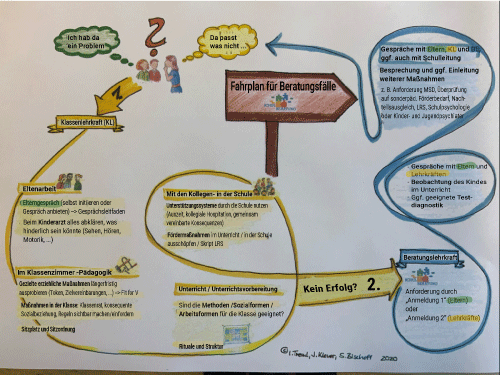 Ich hab da
ein Problem
?
Da passt
was nicht ...
1.
Klassenlehrkraft (KL)
Fahrplan für Beratungsfälle
Elternarbeit
Elterngespräch (selbst initiieren oder
Gespräch anbieten) –> Gesprächsleitfaden
Beim Kinderarzt alles abklären, was
hinderlich sein könnte (Sehen, Hören,
Motorik, ...)
Im Klassenzimmer - Pädagogik
Gezielte erziehliche Maßnahmen längerfristig
ausprobieren (Token, Zielvereinbarungen, ...) –> Fit for V
Maßnahmen in der Klasse: Klassenrat, konsequente
Sozialbeziehung, Regeln sichtbar machen/einfordern
Sitzplatz und Sitzordnung
Mit den Kollegen - in der Schule
Unterstützungssysteme durch die Schule nutzen
(Auszeit, kollegiale Hospitation, gemeinsam
vereinbarte Konsequenzen)
Fördermaßnahmen im Unterricht / in der Schule
ausschöpfen / Skript LRS
Unterricht / Unterrichtsvorbereitung
Sind die Methoden /Sozialformen /
Arbeitsformen für die Klasse geeignet?
Rituale und Struktur
Kein Erfolg? 2.
Beratungslehrkraft
Anforderung durch
„Anmeldung 1“ (Eltern)
oder
„Anmeldung 2“ (Lehrkräfte)
- Gespräche mit Eltern und
Lehrkräften
- Beobachtung des Kindes
im Unterricht
- Ggf. geeignete Test-
diagnostik
Gespräche mit Eltern, KL und
ggf. auch mit Schulleitung
Besprechung und ggf. Einleitung
weiterer Maßnahmen
z. B. Anforderung MSD, Überprüfung
auf sonderpäd. Förderbedarf, Nach-
teilsausgleich; LRS, Schulpsychologie
oder Kinder- und Jugendpsychiater
2020